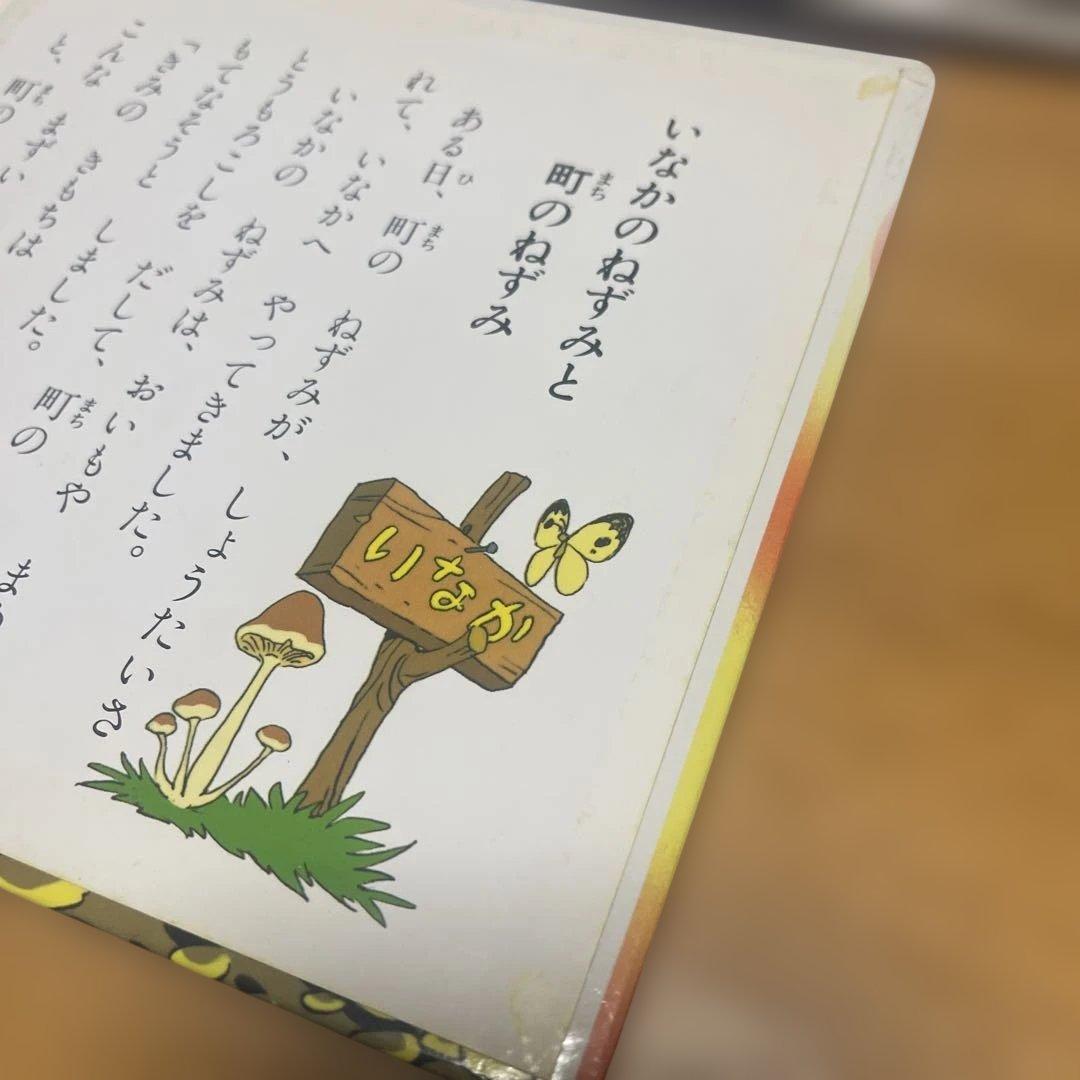 いなかのねずみと
町のねずみ
まち
ある日、 町の ねずみが、 しょうたいさ
ひ
まち
れて、 いなかへ やってきました。
いなかの ねずみは、 おいもや
とうもろこしを だして、 町の
まち
もてなそうと しました。
「きみの きもちは
こんな まずい
と、 町の
まち
いなか